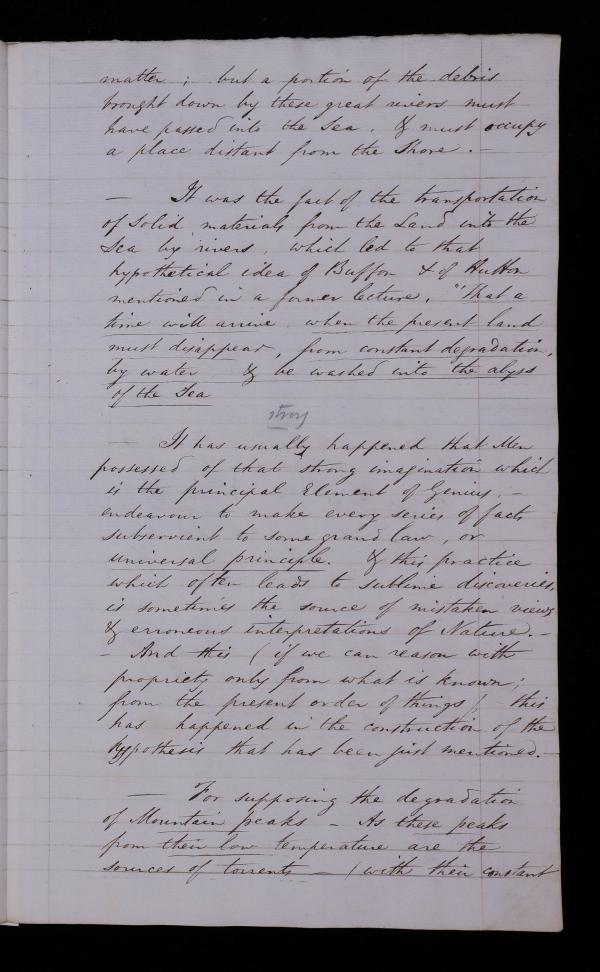 matter ; but a portion of the debris
brought down by these great rivers must
have passed into the Sea. & must occupy
a place distant from the Shore. –
– It was the fact of the transportation
of Solid materials from the Land into the
Sea by rivers, which led to that
hypothetical idea of Buffon & of Hutton
mentioned in a former lecture, "That a
time will arrive when the present land
must disappear, from constant degradation,
by water & be washed into the abyss
of the Sea
strong
– It has usually happened that Men
possessed of that strong imagination which
is the principal Element of Genius, –
endeavour to make every series of facts
subservient to some grand law, or
universal principle. & this practice
which often leads to sublime discoveries,
is sometimes the source of mistaken views
& erroneous interpretations of Nature. –
– And this (if we can reason with
propriety only from what is known;
from the present order of things) this
has happened in the construction of the
Hypothesis that has been just mentioned. –
– For supposing the degradation
of Mountain peaks – As these peaks
from their low temperature are the
sources of torrents – (with their constant